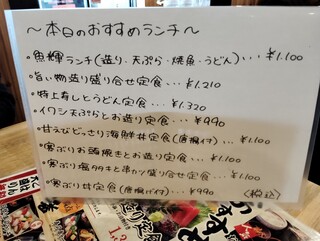 ～本日のおすすめランチ～
・魚輝ランチ(造り・天ぷら・焼魚・うどん)・・・¥1.100
・旨い物造り盛り合せ定食・・・¥1.210
・特上寿しとうどん定食・・・¥1.320
・イワシ天ぷらとお造り定食・・・¥990
・甘えびどっさり海鮮丼定食(唐揚げ付)・・・¥1.100
・寒ぶりお頭焼きとお造り定食・・・¥1.100
・寒ぶり塩タタキと串カツ盛り合せ定食・・・¥1.100
・寒ぶり丼定食(唐揚げ付)・・・¥990 (税込)